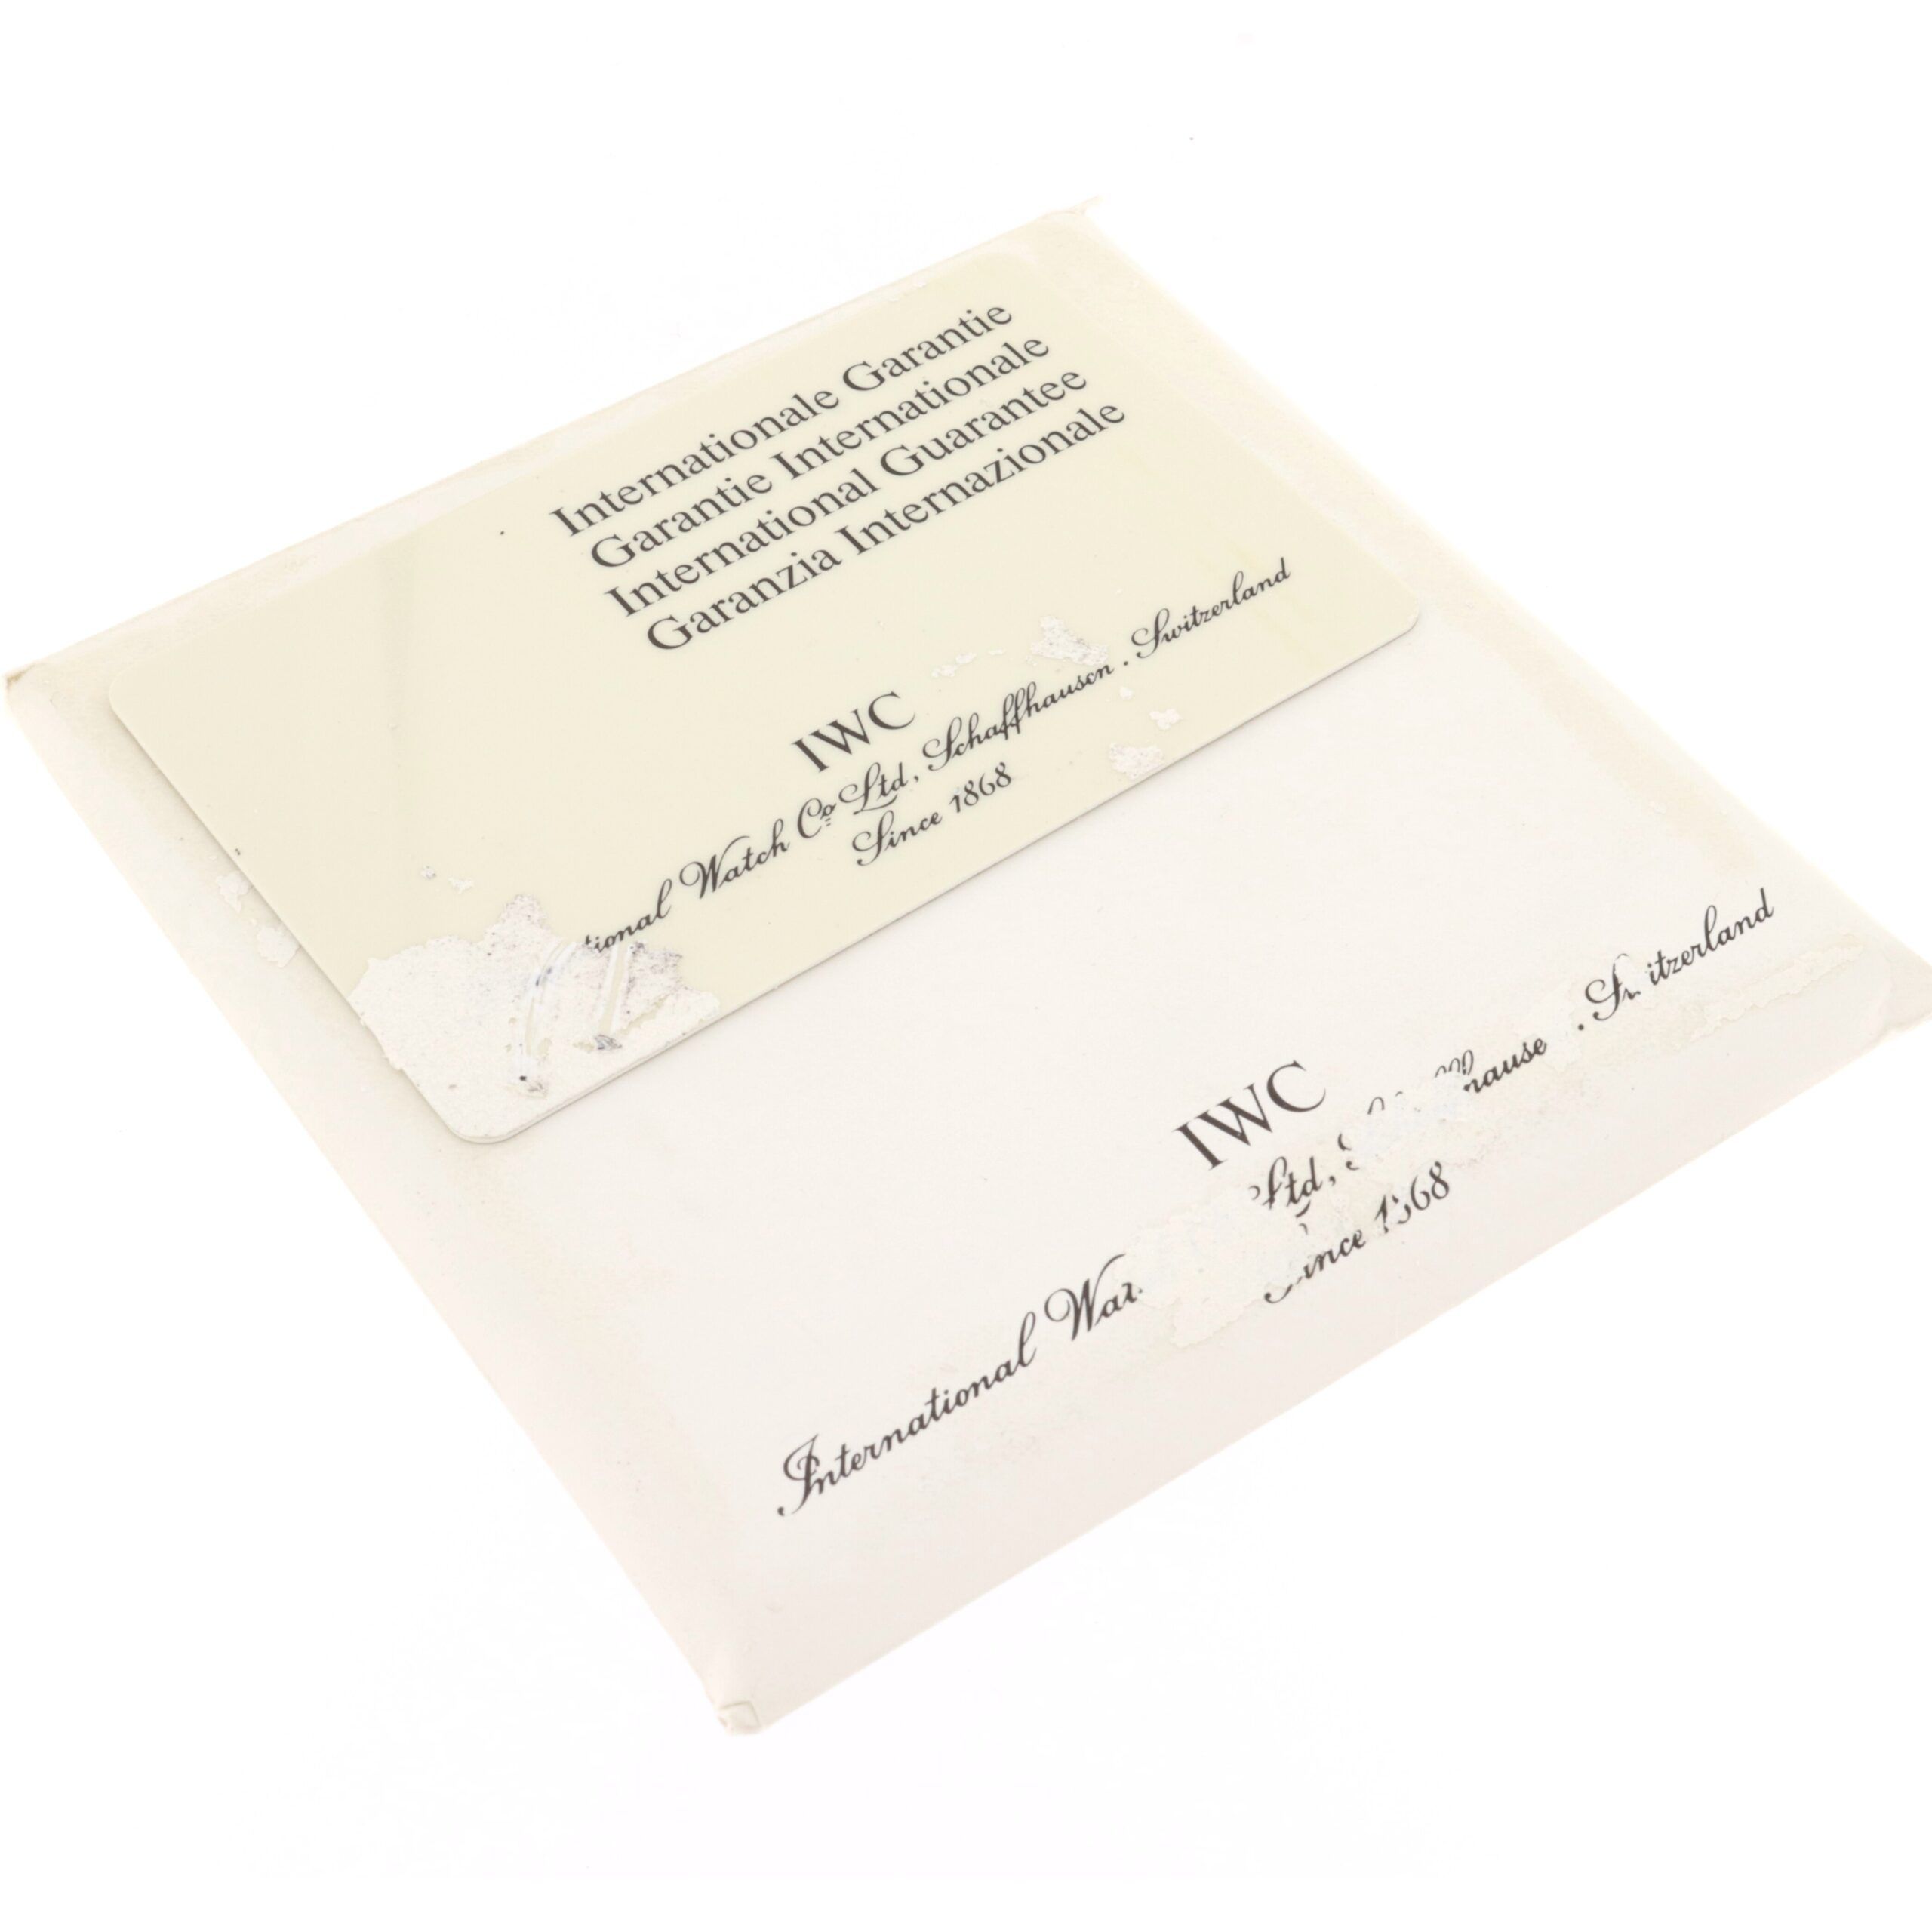 Internationale Garantie
Garantie Internationale
International Guarantee
Garanzia Internazionale
IWC
Watch Co Ltd, Schaffhausen . Switzerland
Since 1868
IWC
International Ltd, . Switzerland